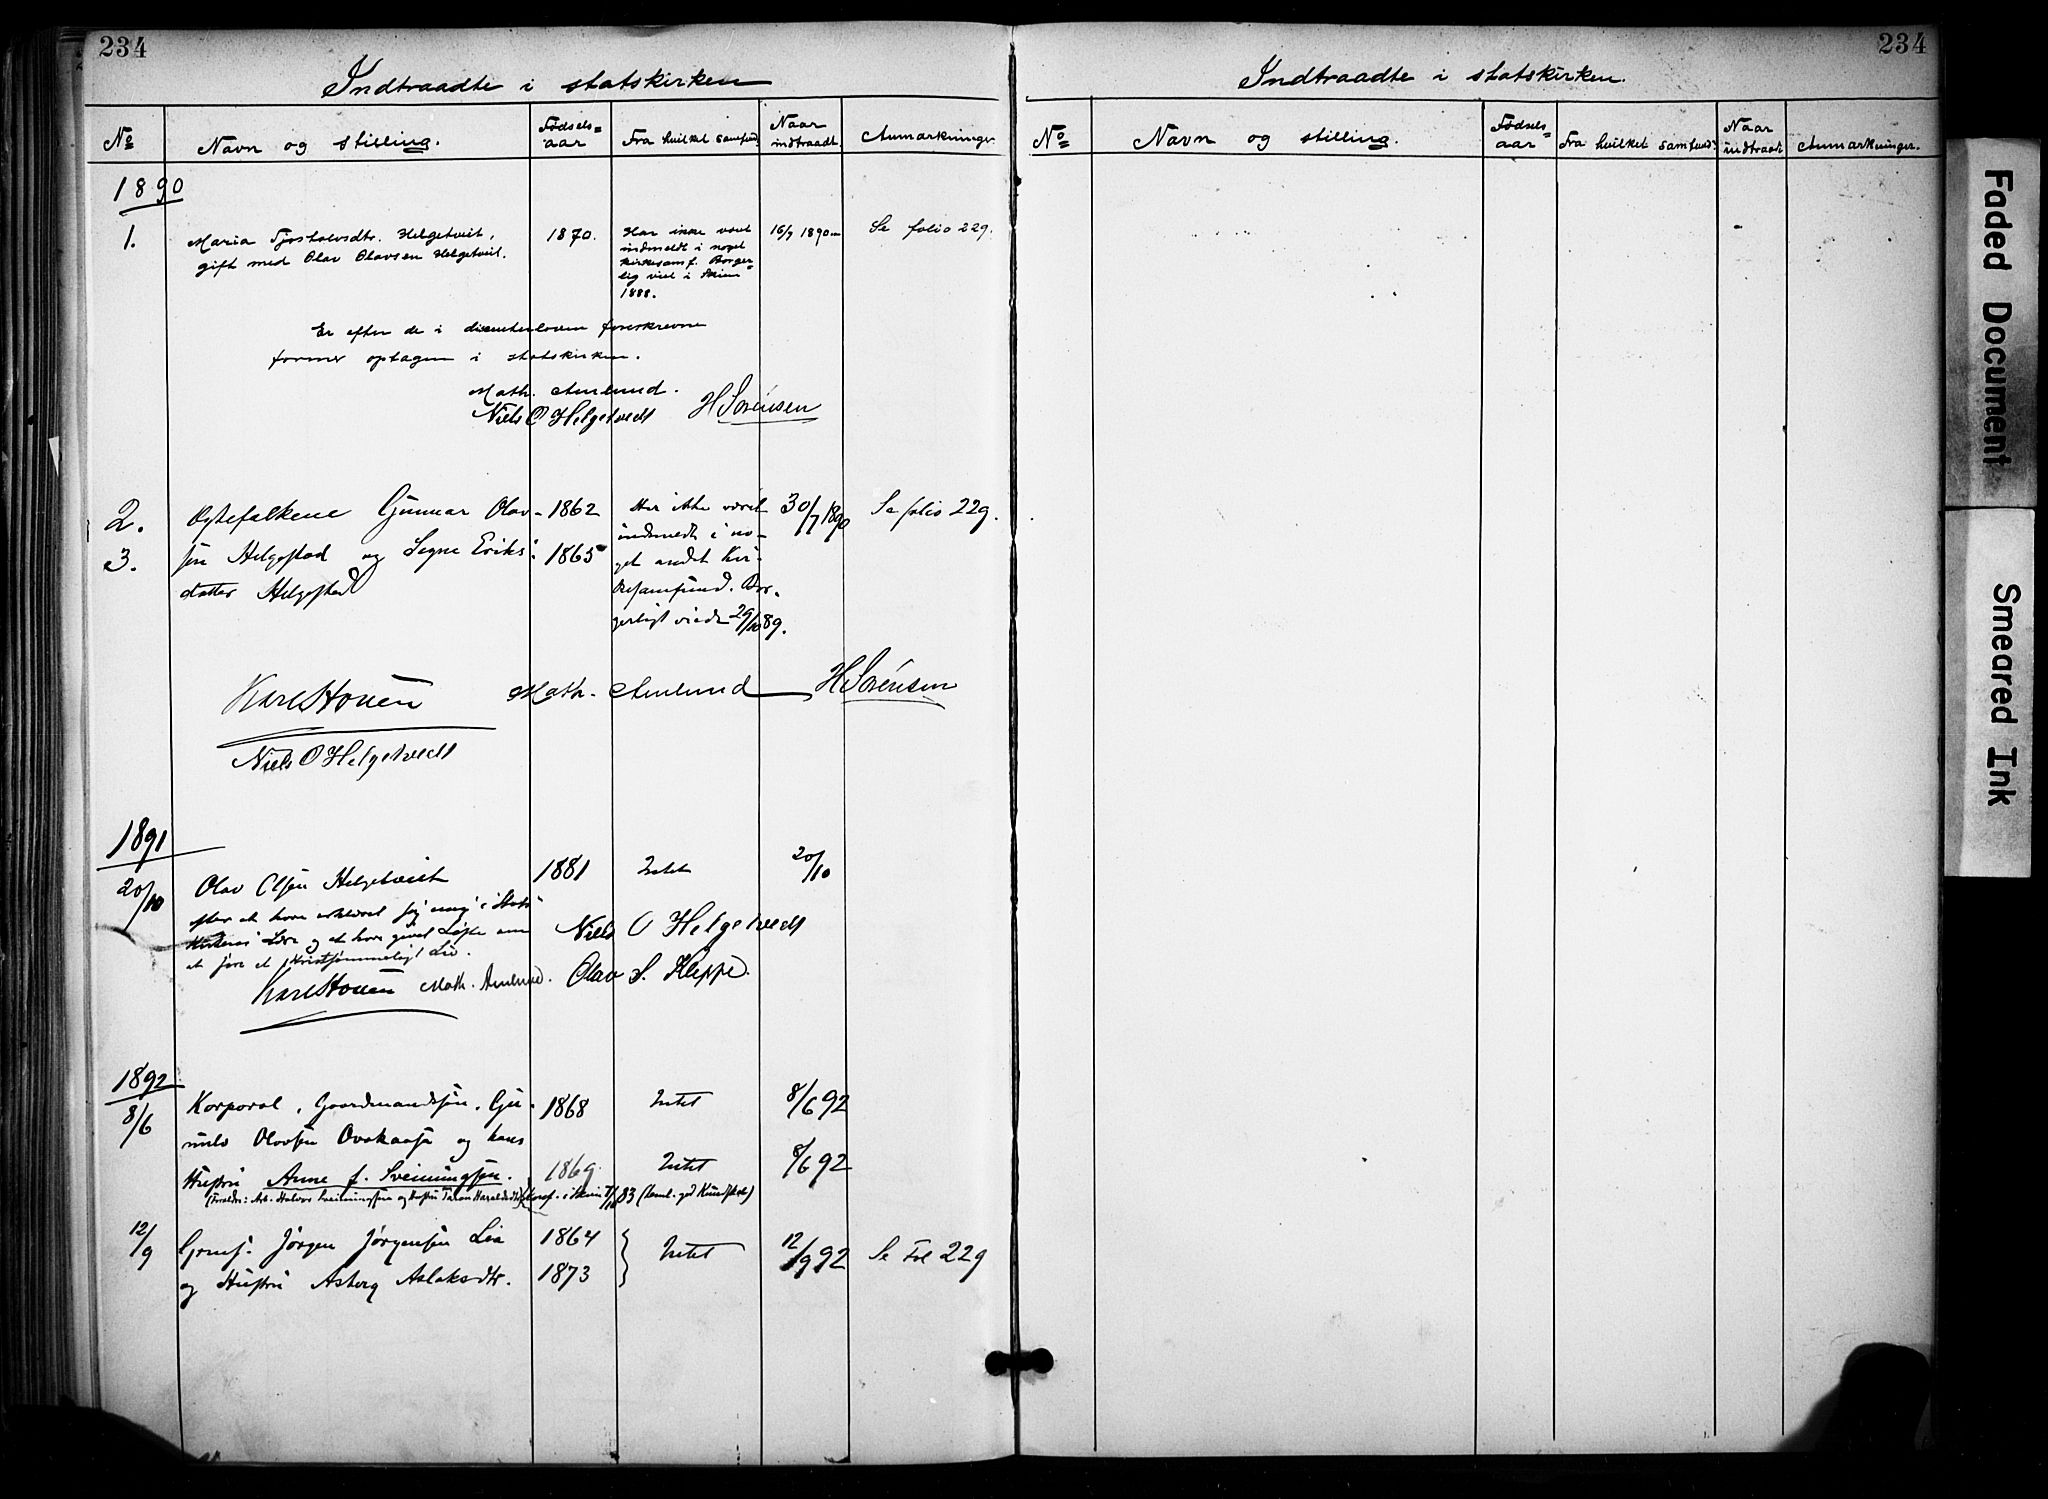 234
Indtraadte i statskirken
No Navn og stilling. Fødsels=aar Fra hvilket samfund. Naar indtraadt. Anmærkninger.
1890
1. Maria Tjostolvsdtr. Helgetveit, 1870. Har ikke vært 16/7 1890 Se folio 229.
gift med Olav Olavsen Helgetveit. indmeldt i noget
kirkesamf. Borger=
lig viet i Skien
1888.
Er efter de i dissenterloven foreskrevne
former optagen i statskirken.
Math. Amlund.
Niels O Helgetvedt H Sørensen
2. Ægtefolkene Gunnar Olav- 1862 Har ikke været 30/7 1890 Se folio 229.
indmeldt i no-
3. sen Helgestad og Signe Eriks- 1865
get andet Kir-
datter Helgestad kesamfund. Bor-
gerligt viede 29/10 89.
Karl Houen Math. Amlund H Sørensen
Niels O Helgetvedt
1891
20/10 Olav Olsen Helgetveit 1881 Intet 20/10
efter at have erklæret sig enig i Stats
Kirkens Lære og at have givet Løfte om Niels O Helgetvedt
at føre et kristsømmeligt Liv.
Karl Houen Math. Amlund. Olav S. Kleppe.
1892
8/6 Korporal, Gaardmandssøn, Gu- 1868 Intet 8/6 92
nuld Olovsen Ovakaasa og hans
Hustru Anne f. Sveinungsen. 1869 Intet 8/6 92
(Forældre: Arb. Halvor Sveinungsen og Hustru Taran Haraldsdtr) Konf. i Skien 7/10 83
12/9 Grmf. Jørgen Jørgensen Lia 1864 Intet 12/9 92 Se Fol 229
og Hustru Asberg Aslaksdtr. 1873
234
Indtraadte i statskirken.
No Navn og stilling. Fødsels=aar Fra hvilket samfund. Naar indtraadt Anmærkninger.
Faded Document
Smeared Ink